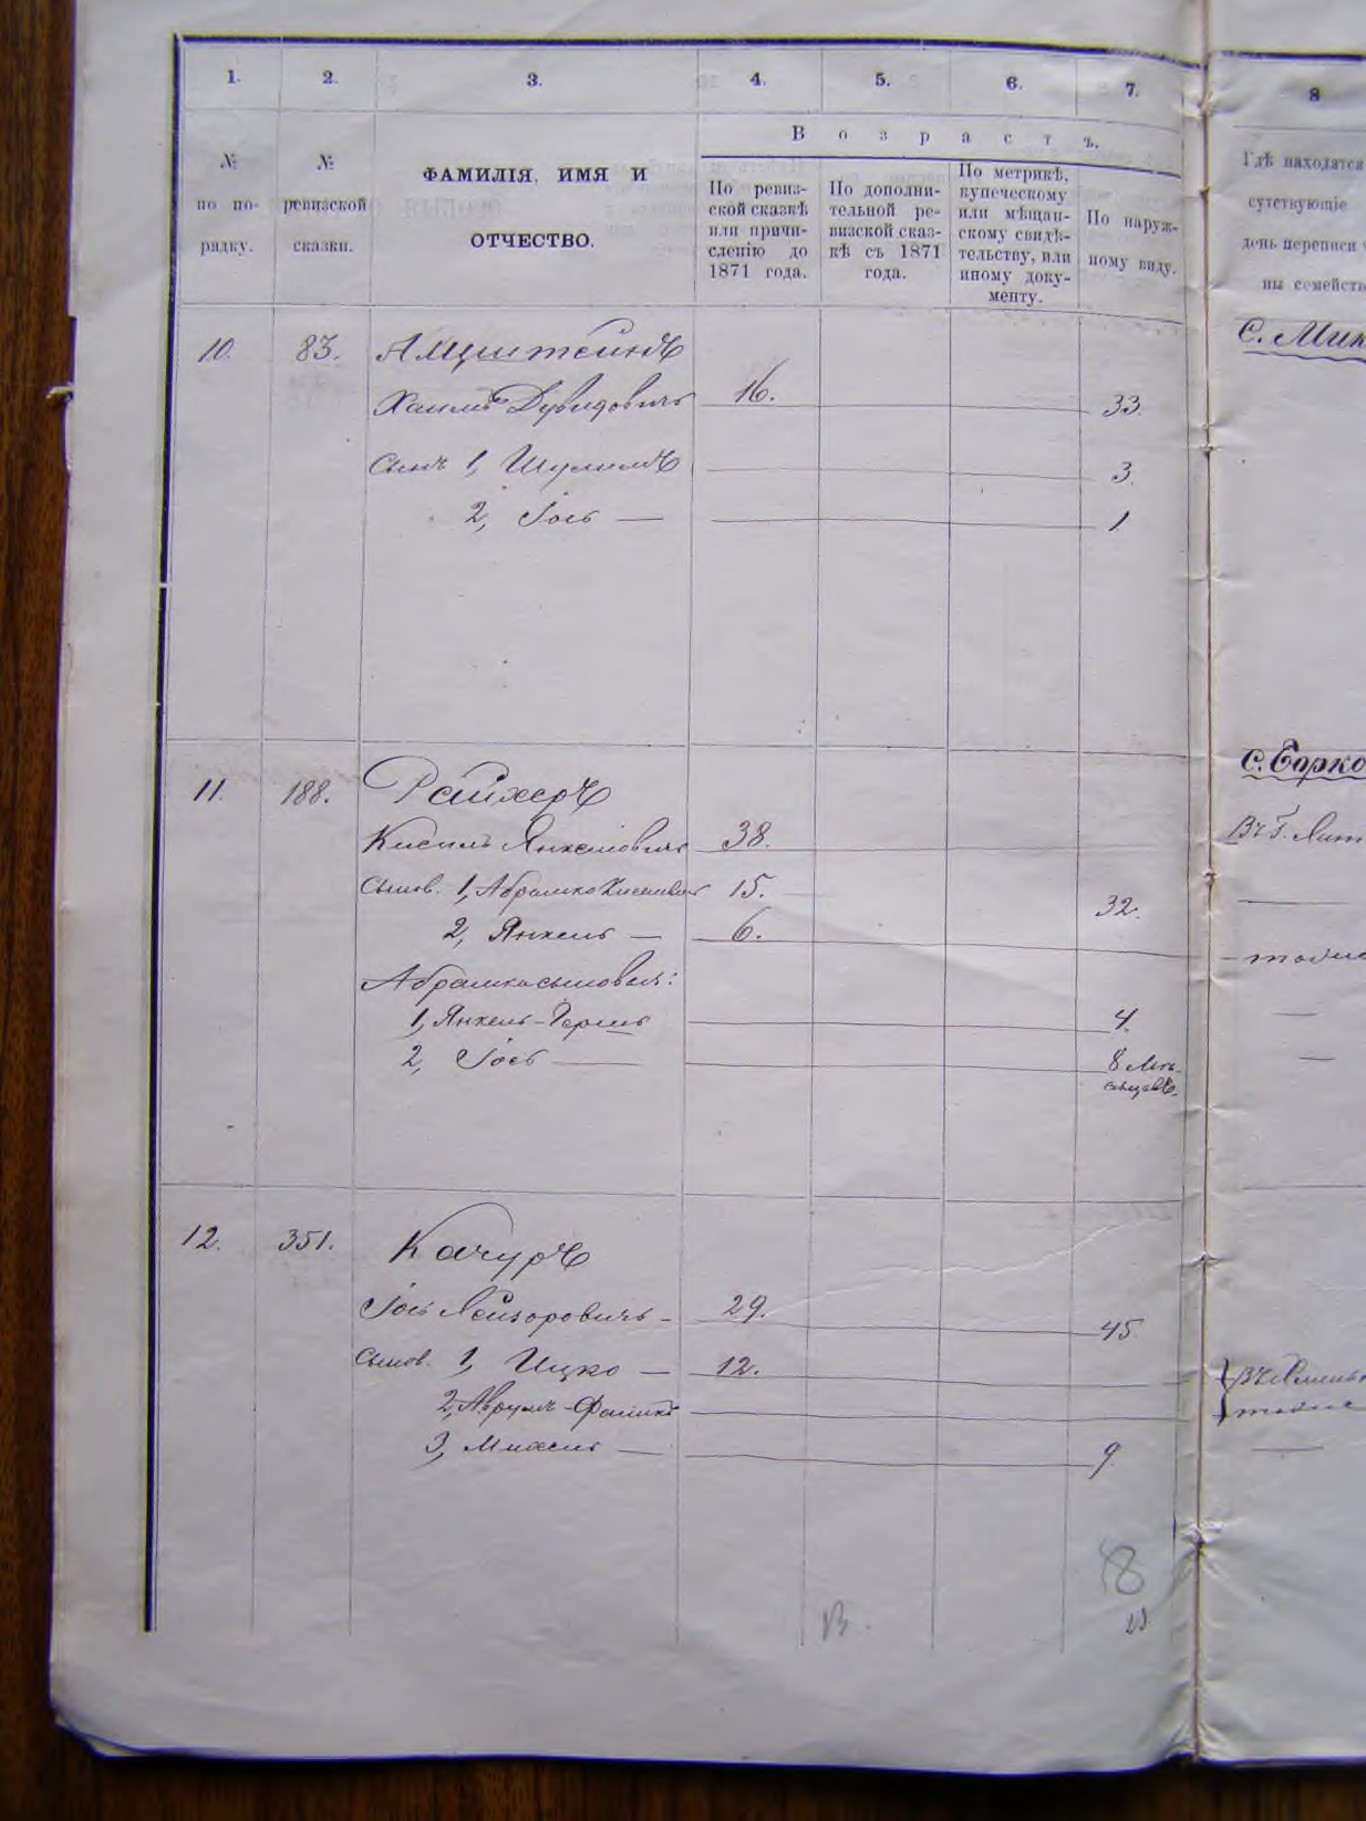 1. 2. 3. 4. 5. 6. 7. 8
Возрастъ.
№ по порядку.
№ ревизской сказки.
ФАМИЛІЯ, ИМЯ И
ОТЧЕСТВО.
По ревиз-
ской сказкѣ
или причи-
сленію до
1871 года.
По дополни-
тельной ре-
визской сказ-
кѣ съ 1871
года.
По метрикѣ,
купеческому
или мѣщан-
скому свидѣ-
тельству, или
иному доку-
менту.
По наруж-
ному виду.
Гдѣ находятся
сутствующіе
день переписи
ны семейств
10. 83. Амштейнъ С. Мик
Хаимъ Дувидовичъ 16. 33.
Сынъ 1, Шулимъ 3.
2, Іось — 1
11. 188. Райхеръ С. Борко
Кисиль Янкелевичъ 38. Въ Г.
Сынов. 1, Абрамко Кисилевич 15. 32.
2, Янкель — 6. тоже
Абрамка сыновья:
1, Янкель-Герш 4.
2, Іось — 8 мѣ-
сяцевъ.
12. 351. Качуръ
Іось Лейзоровичъ - 29. 45
Сынов. 1, Ицко — 12.
2, Аврумъ-Фалик
3, Михель — 9
8